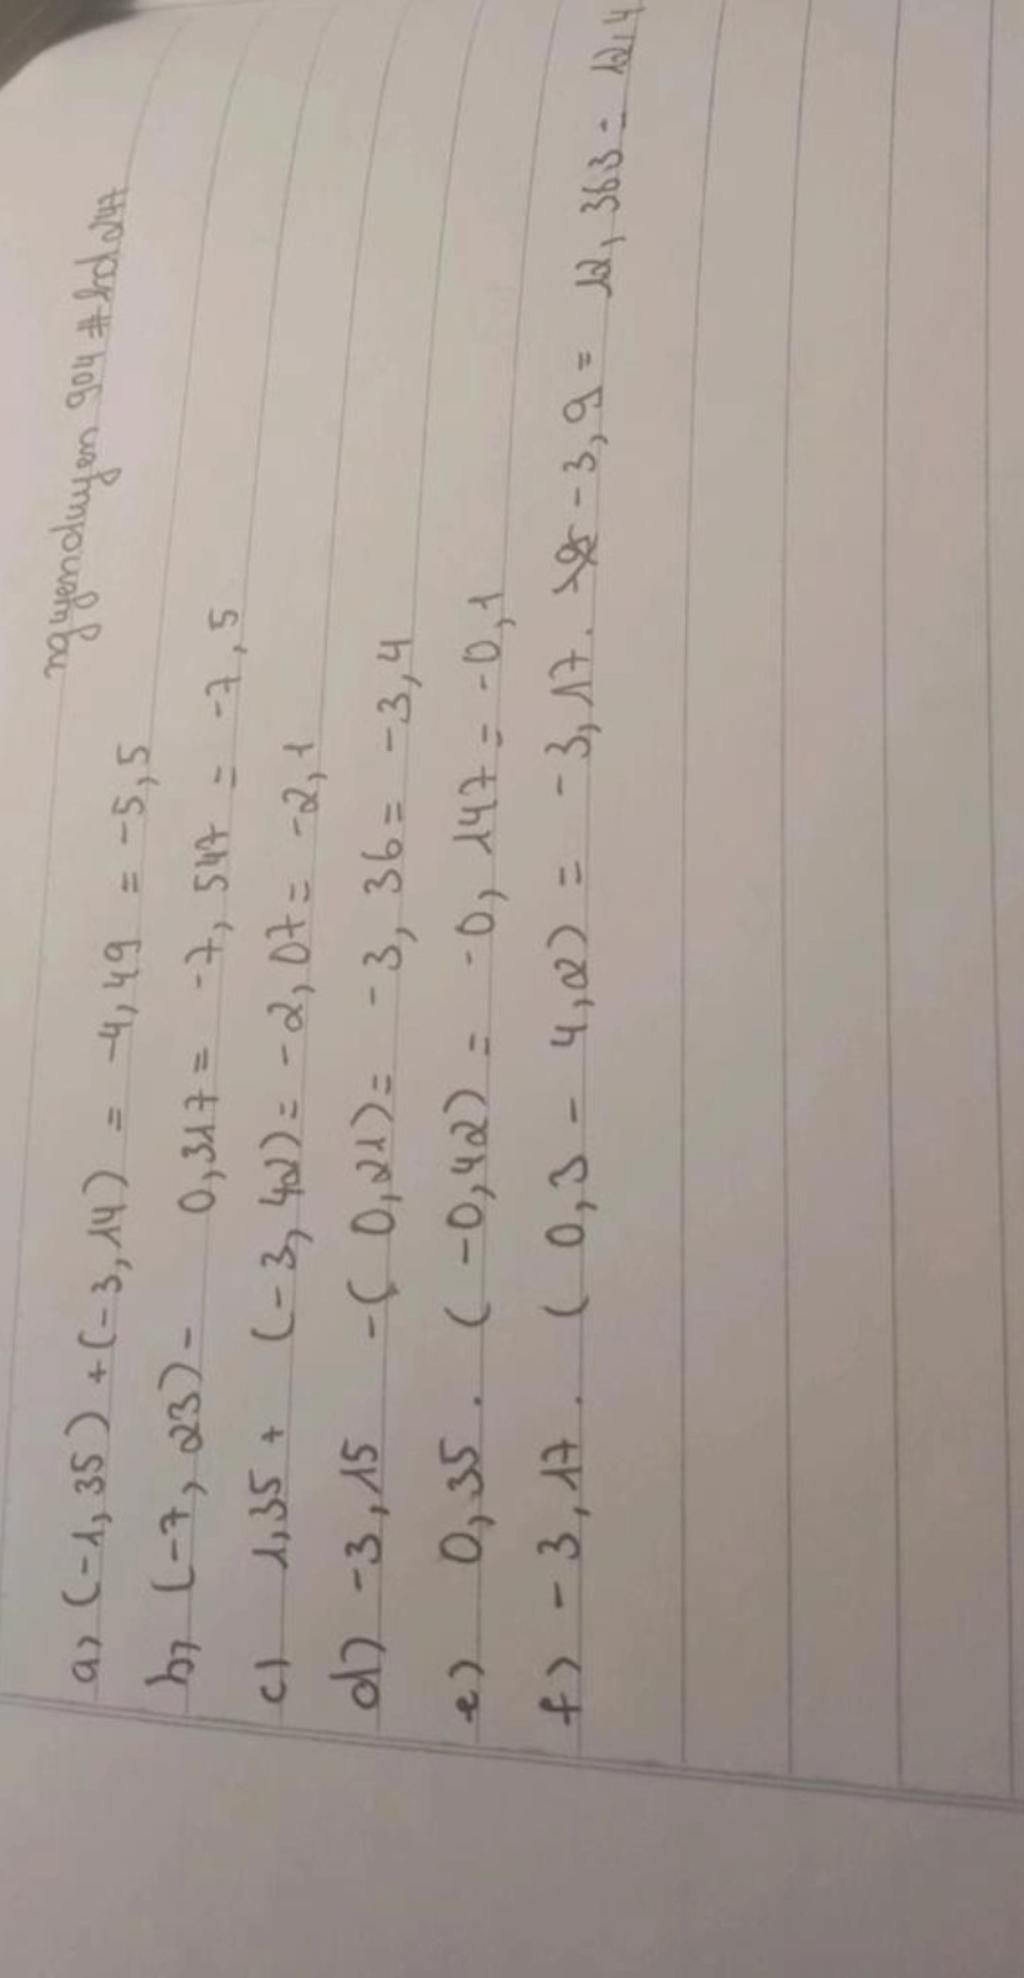 nguyenduyen904#hd247
a) (-1,35) + (-3,14) = -4,49 = -5,5
b) (-7,23) - 0,317 = -7,547 = -7,5
c) 1,35 + (-3,42) = -2,07 = -2,1
d) -3,15 -( 0,21) = -3,36 = -3,4
e) 0,35 . (-0,42) = -0,147 = -0,1
f) -3,17 . ( 0,3 - 4,2) = -3,17 . -3,9 = 12,363 = 12,4